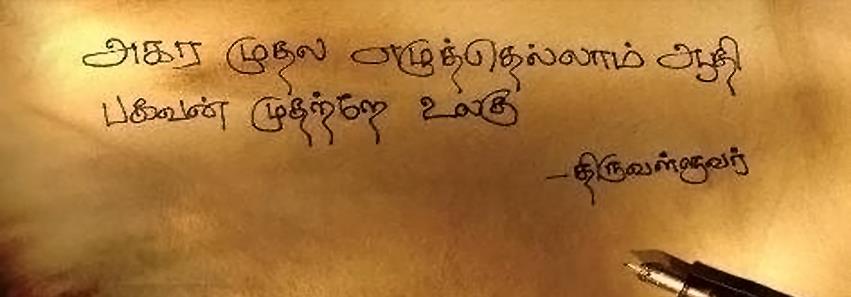 அகர முதல எழுத்தெல்லாம் ஆதி
பகவன் முதற்றே உலகு
-திருவள்ளுவர்